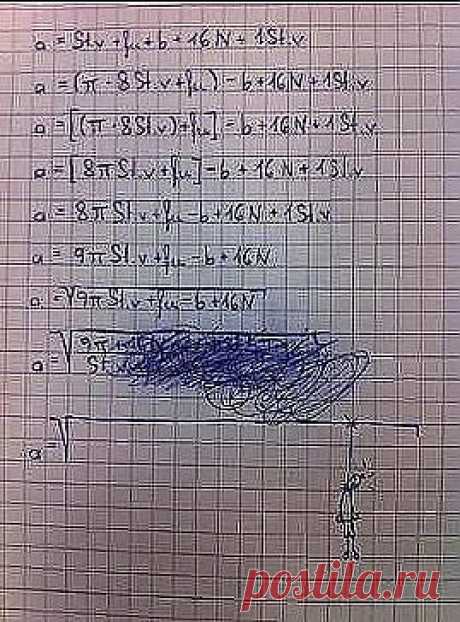 a = St.v + fµ + b + 16N + 1St.v
a = (π · 8St.v + fµ) - b + 16N + 1St.v
a = [(π · 8St.v) + fµ] - b + 16N + 1St.v
a = [8πSt.v + fµ] - b + 16N + 1St.v
a = 8πSt.v + fµ - b + 16N + 1St.v
a = 9πSt.v + fµ - b + 16N
a = √9πSt.v + fµ - b + 16N
a = √
a = √
postila.ru